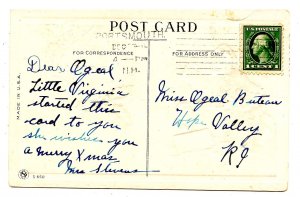 POST CARD
PORTSMOUTH,
FOR CORRESPONDENCE
FOR ADDRESS ONLY
U.S. POSTAGE
1 CENT 1
Dear Ogeal
Little Virginia
started this
card to you
she wishes you
a merry Xmas
Mrs Stevens
Miss Ogeal Buteau
Hope Valley
RI
MADE IN U.S.A.